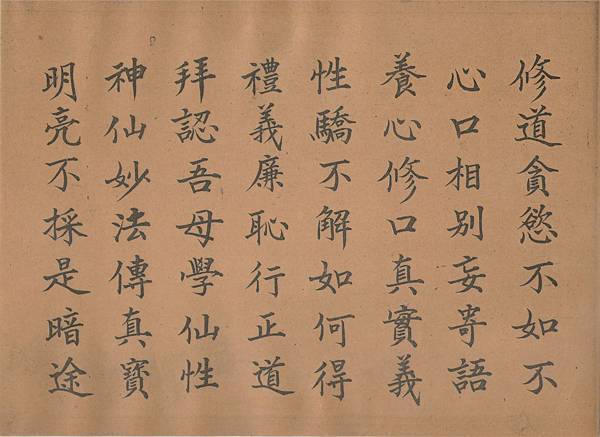 修道貪慾不如不
心口相別妄寄語
養心修口真實義
性驕不解如何得
禮義廉恥行正道
拜認吾母學仙性
神仙妙法傳真寶
明亮不採是暗途